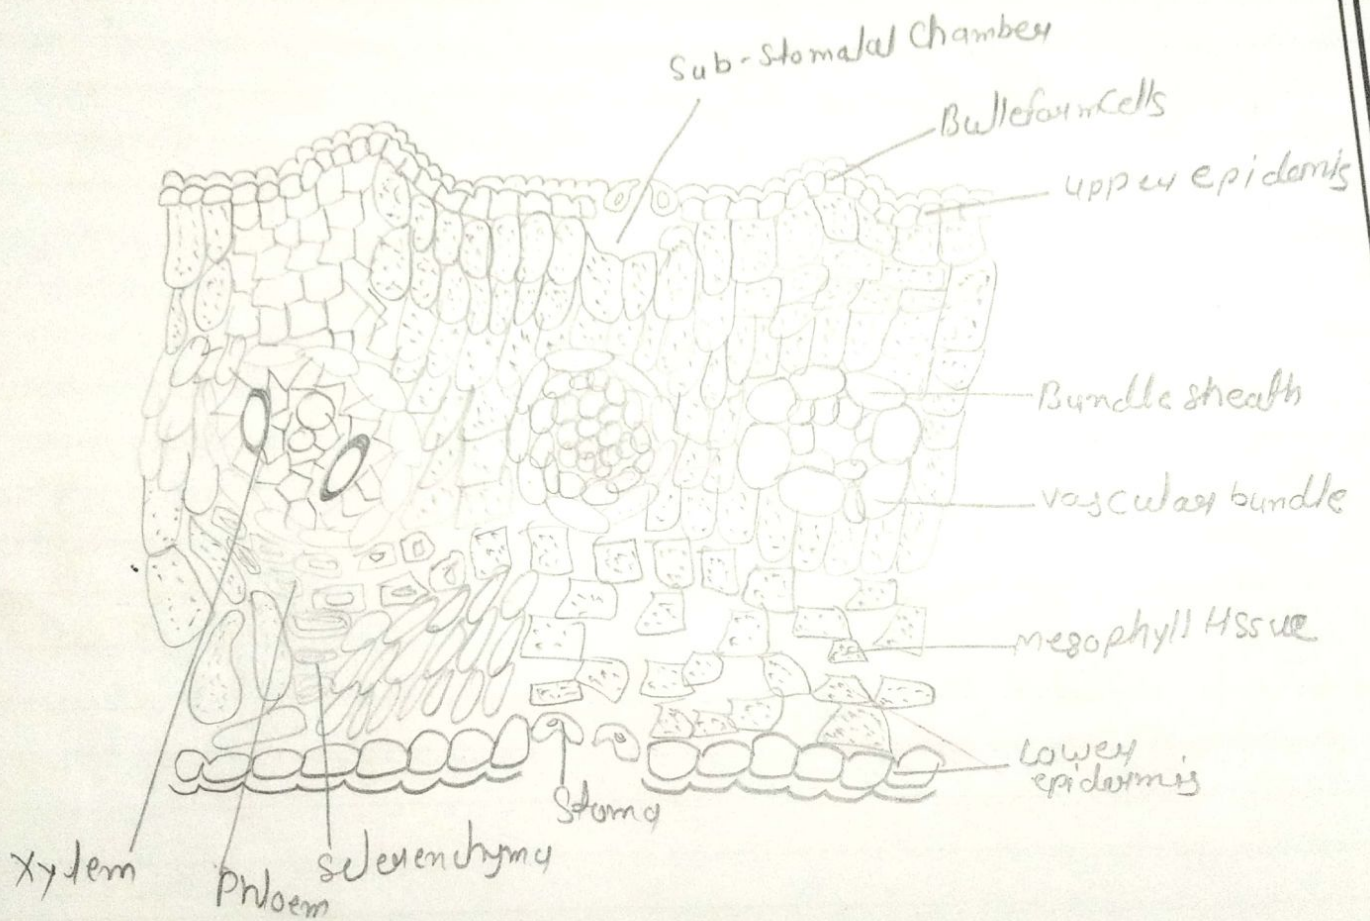 Sub-Stomatal Chamber
Bulleform Cells
upper epidemis
Bundle sheath
vascular bundle
mesophyll tissue
Lower
epidermis
Stoma
Sclerenchyma
Phloem
Xylem